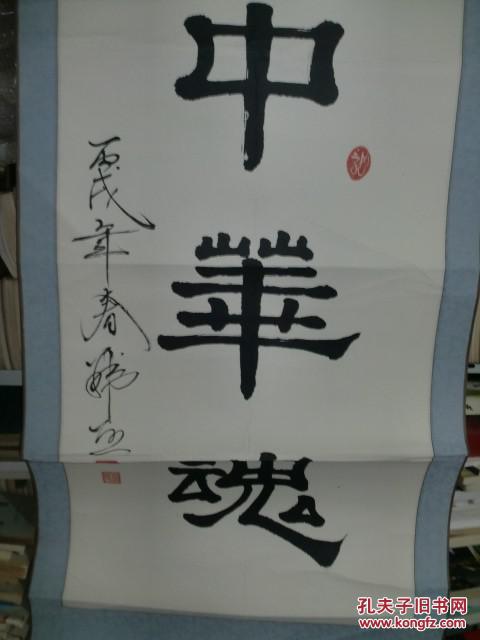 中華魂
丙戌年春
孔夫子旧书网
www.kongfz.com